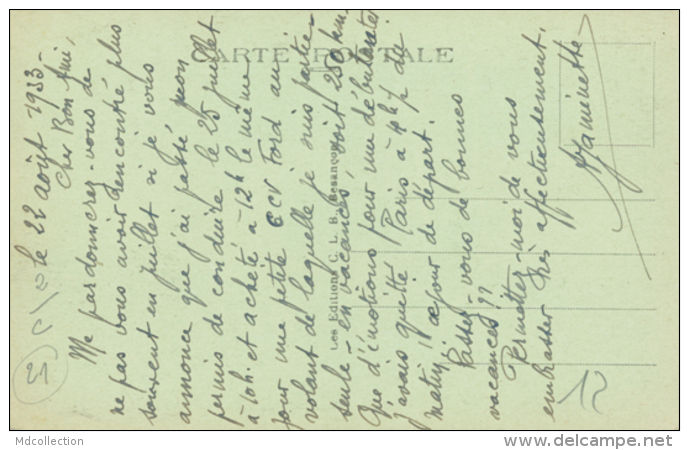 CARTE POSTALE
le 22 août 1933-
Cher Bon Ami,
Me pardonnerez-vous de
ne pas vous avoir rencontré plus
souvent en juillet si je vous
annonce que j'ai passé mon
permis de conduire le 25 juillet
à 10h. et acheté à 12h le même
jour une petite Ford au
volant de laquelle je suis partie-
seule - en vacances, soit 250 km.
Que d'émotions pour une débutante
j'avais quitté Paris à 4h 7 du
matin, jour de départ.
Passez-vous de bonnes
vacances ??
Permettez-moi de vous
embrasser très affectueusement.
Les Editions C. L. B. Besançon
21
12
Mdcollection
www.delcampe.net